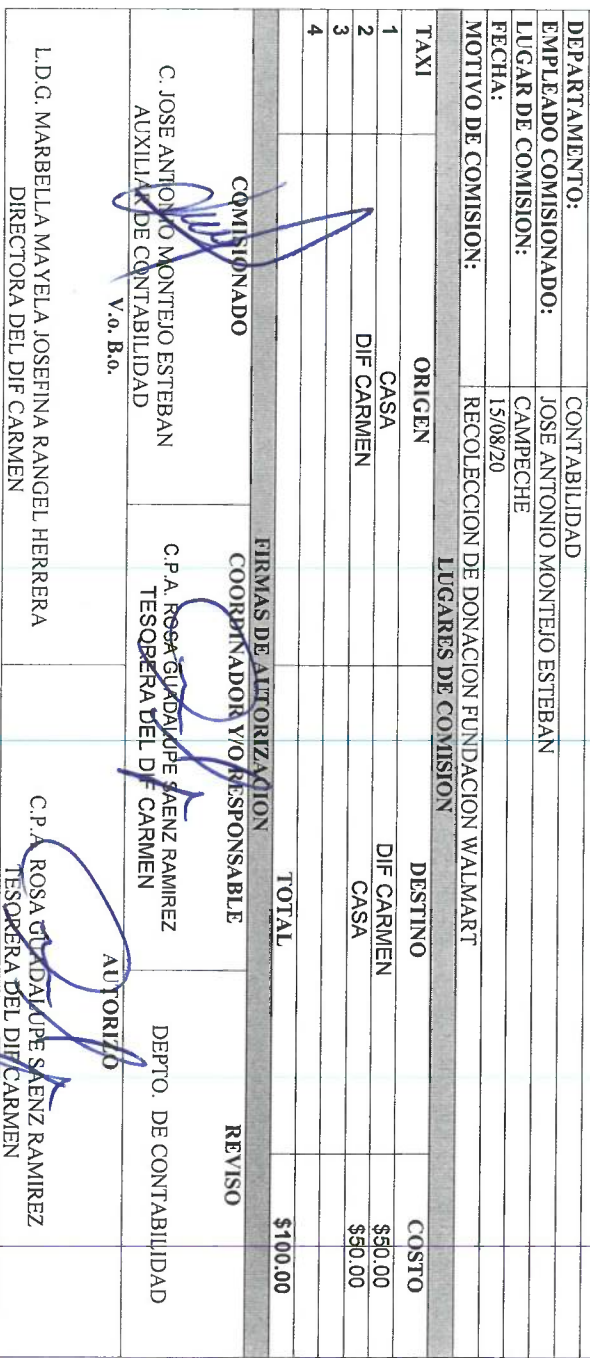 DEPARTAMENTO: CONTABILIDAD
EMPLEADO COMISIONADO: JOSE ANTONIO MONTEJO ESTEBAN
LUGAR DE COMISION: CAMPECHE
FECHA: 15/08/20
MOTIVO DE COMISION: RECOLECCION DE DONACION FUNDACION WALMART
LUGARES DE COMISION
TAXI ORIGEN DESTINO COSTO
1 CASA DIF CARMEN $50.00
2 DIF CARMEN CASA $50.00
3
4
TOTAL $100.00
FIRMAS DE AUTORIZACION
COMISIONADO COORDINADOR Y/O RESPONSABLE REVISO
C. JOSE ANTONIO MONTEJO ESTEBAN C.P.A. ROSA GUADALUPE SAENZ RAMIREZ DEPTO. DE CONTABILIDAD
AUXILIAR DE CONTABILIDAD TESORERA DEL DIF CARMEN
V.o. B.o. AUTORIZO
L.D.G. MARBELLA MAYELA JOSEFINA RANGEL HERRERA C.P.A. ROSA GUADALUPE SAENZ RAMIREZ
DIRECTORA DEL DIF CARMEN TESORERA DEL DIF CARMEN